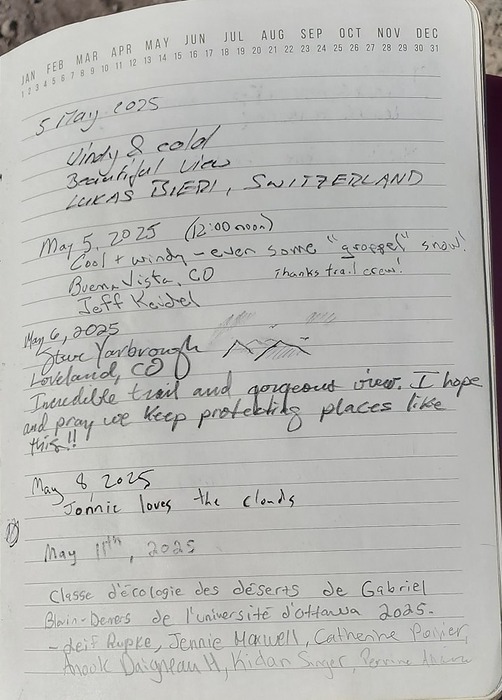 JAN FEB MAR APR MAY JUN JUL AUG SEP OCT NOV DEC
1 2 3 4 5 6 7 8 9 10 11 12 13 14 15 16 17 18 19 20 21 22 23 24 25 26 27 28 29 30 31
5 May 2025
Windy & cold
Beautiful view
LUKAS BIERI, SWITZERLAND
May 5, 2025 (12:00 noon)
Cool + windy - even some "groppel" snow!
Buena Vista, CO Thanks trail crew!
Jeff Keidel
May 6, 2025
Steve Yarbrough
Loveland, CO
Incredible trail and gorgeous view. I hope
and pray we keep protecting places like
this!!
May 8 2025
Jonnie loves the clouds
May 11th, 2025
Classe d'écologie des déserts de Gabriel
Blouin-Demers de l'université d'Ottawa 2025.
- Leif Rupke, Jennie Maxwell, Catherine Poirier,
Anouk Daigneault, Kidan Singer,